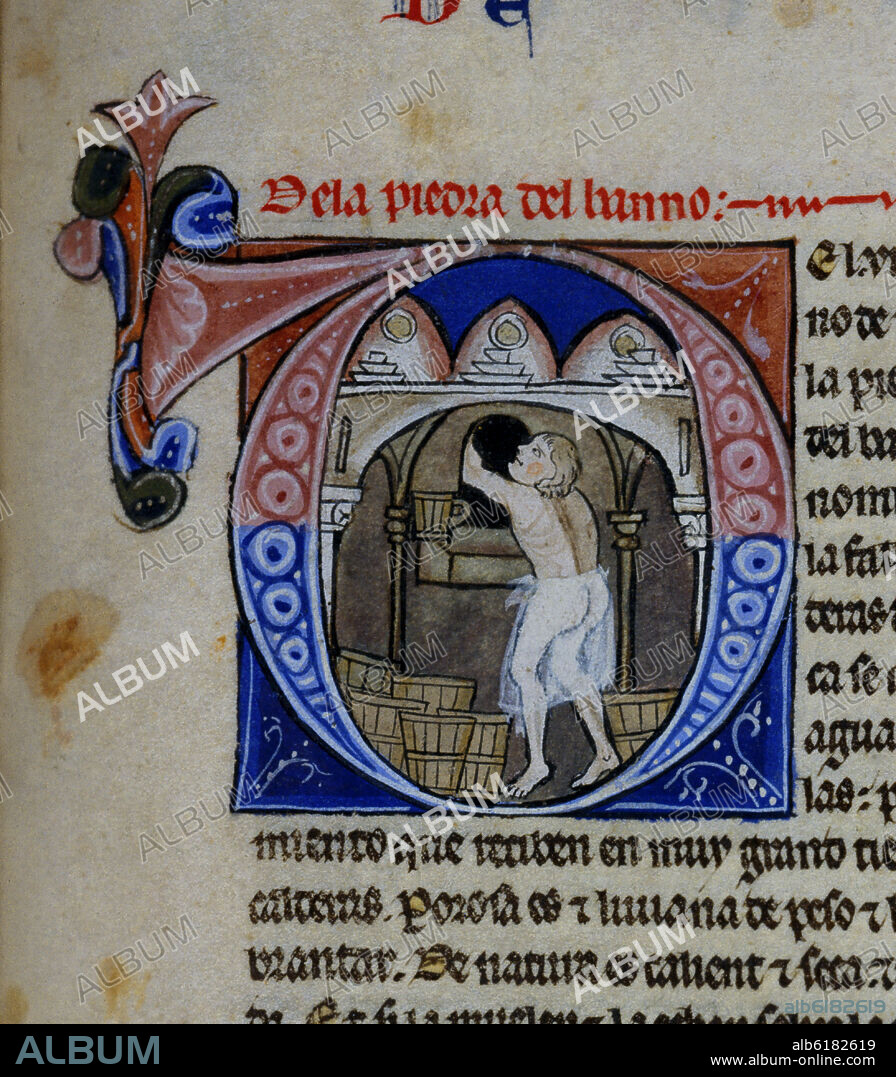 De
De la piedra del banno:
El xvi
no de
la pie
del ba
nom
la fa
deras
ca se
agua
las: p
miento que reciben en muy grand tie
calderas. Porosa es ⁊ liuiana de peso ⁊
brantar. De natura es calient ⁊ seca.
ALBUM
alb6182619
ALBUM
alb6182619
www.album-online.com